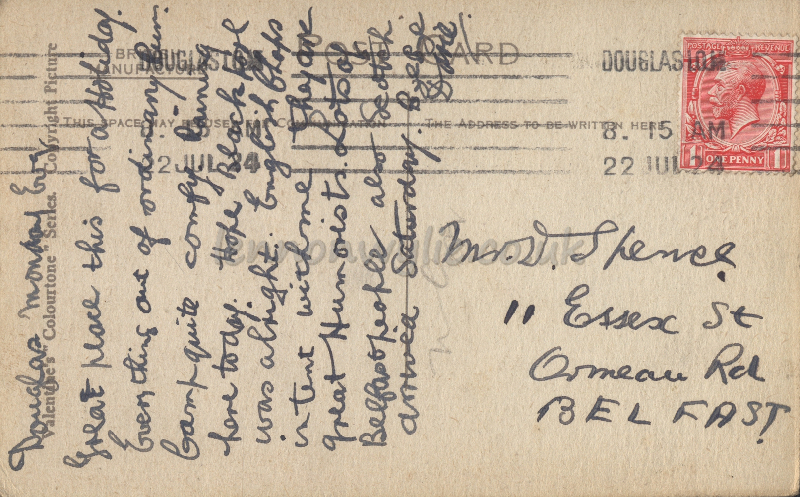 Douglas Monday Eve
Great place this for a Holiday.
Everything out of ordinary here.
Camp quite comfy. Raining
here today. Hope Blackpool
was alright. English Chaps
in tent with me they are
great Humorists. Lots of
Belfast people also Scotch
arrived Saturday.
Valentine's "Colourtone" Series. Copyright Picture
BR
MANUFACTURE
CARD
THIS SPACE MAY BE USED FOR COMMUNICATION
THE ADDRESS TO BE WRITTEN HERE
DOUGLAS I.O.M.
22 JUL 24
DOUGLAS I.O.M.
8. 15 AM
22 JUL 24
POSTAGE REVENUE
1 ONE PENNY 1
Mr. D. Spence
11 Essex St
Ormeau Rd
BELFAST
lennonwylie.co.uk